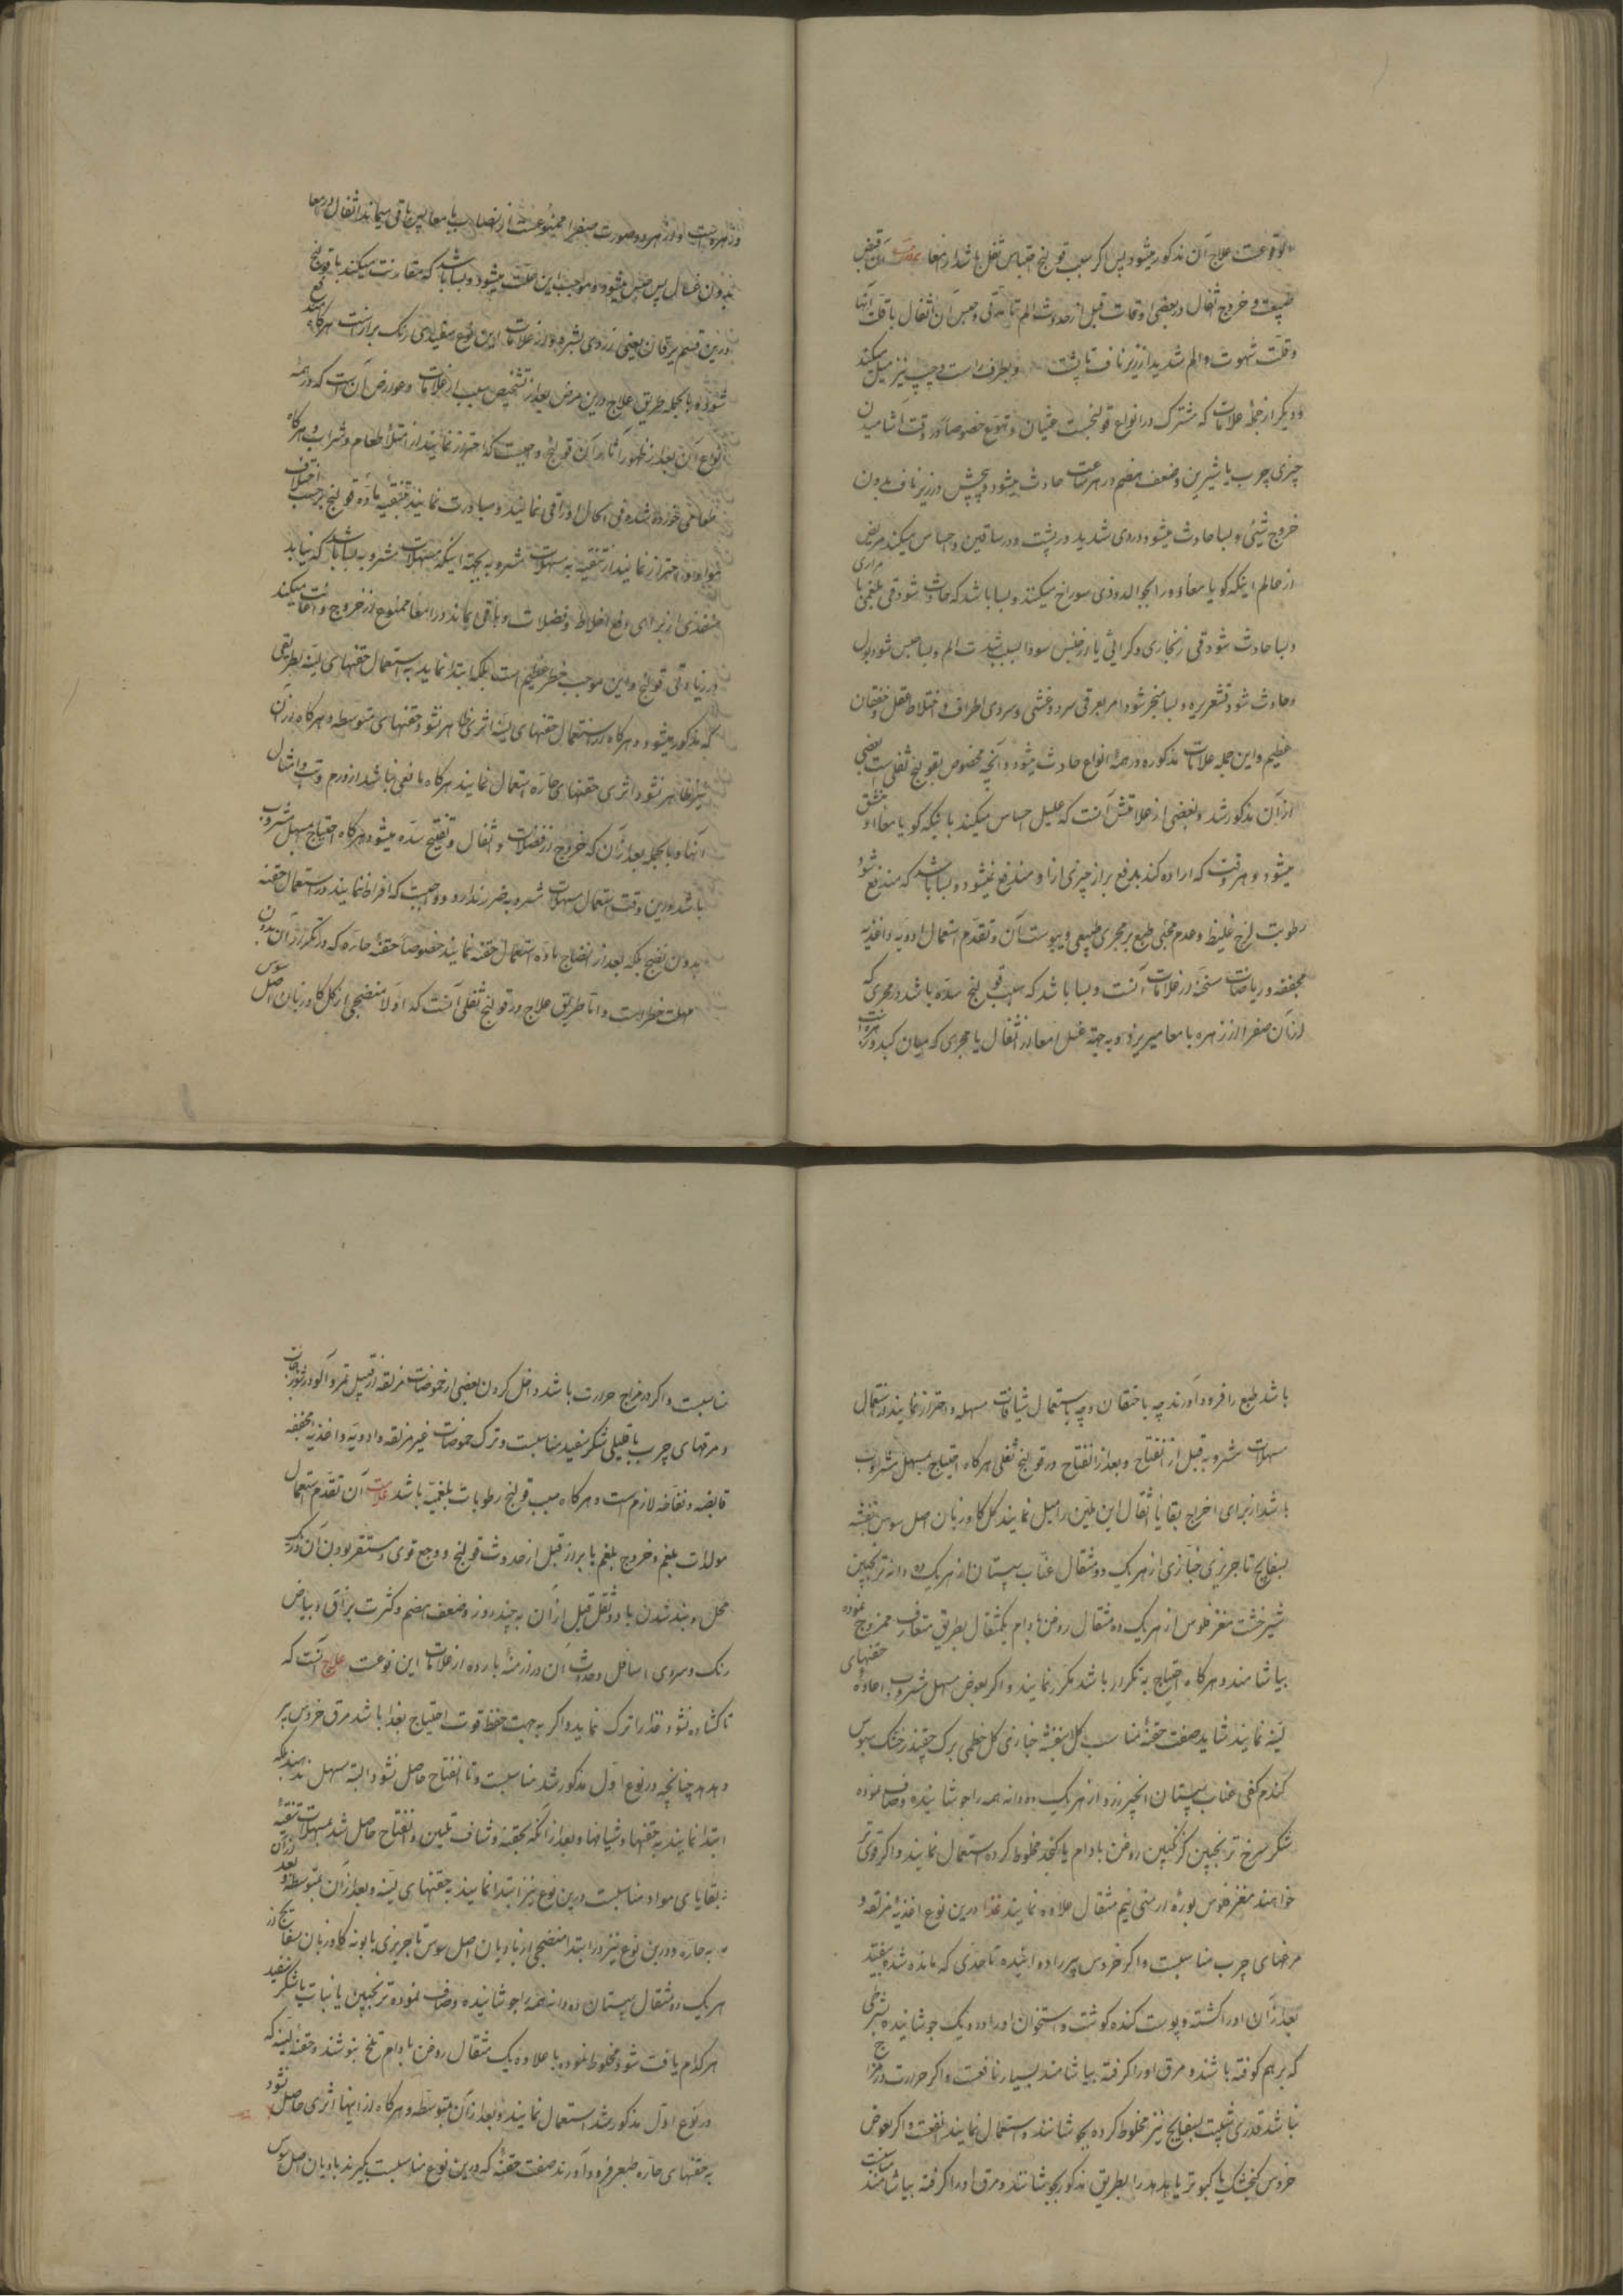 علاج آن مذکور میشود پس اگر سبب قولنج احتباس ثفل باشد در امعا آن قبض
طبیعت و خروج ثفال در بعضی اوقات قبل از حدوث الم و حبس آن اثفال با قلت آنها
و قلت شهوت و الم شدید از زیر ناف تا پشت و بطرف راست و چپ نیز میل میکند
و دیگر از جمله علامات که مشترک در انواع قولنجست غثیان و تهوع خصوصا در وقت آشامیدن
چیزی چرب یا شیرین و ضعف هضم در هر ساعت حادث میشود و پیچش در زیر ناف بدون
خروج شیئی و بسا حادث میشود دردی شدید در پشت و در ساقین و احساس میکند مریض
از عالم اینکه گویا معاء او را بجوالدوزی سوراخ میکنند و بسا باشد که حادث شود قی بلغمی یا مراری
و بسا حادث شود قی زنجاری و کراثی یا از جنس سودا بسبب شدت الم و بسا حبس شود بول
و حادث شود قشعریره و بسا منجر شود امر بعرقی سرد و غشی و سردی اطراف و اختلاط عقل و خفقان
عظیم و این جمله علامات مذکوره در همه انواع حادث میشود و آنچه مخصوص بقولنج ثفلی است بعضی
از آن مذکور شد و بعضی از علامتش آنست که علیل احساس میکند باینکه گویا معاء او منشق
میشود و هر وقت که اراده کند بدفع براز چیزی از او مندفع نمیشود و بسا باشد که مندفع شود
رطوبت لزج غلیظ و عدم مجئی طبع بر مجری طبیعی و یبوست آن و تقدم استعمال ادویه و اغذیه
مجففه و ریاضات مسخنه از علامات آنست و بسا باشد که سبب قولنج سده باشد در مجری که
از آن صفرا از زهره با معا میریزد و به جهة غسل امعا از اثفال یا مجری که میان کبد و زهره است
و زهره است و در هر دو صورت صفرا ممنوعست از انصباب بامعا پس باقی میماند اثفال در معا
بدون غسال پس حبس میشود و موجب این علت میشود و بسا باشد که مقارنت میکند با قولنج
درین قسم یرقان یعنی زردی بشره و از علامات این نوع سفیدی رنگ براز است هرگاه دفع
شود و بالجمله طریق علاج درین مرض بعد از تشخیص سبب از علامات و عوارض آن است که در همه
انواع آن بعد از ظهور آثار آن قولنج واجبست که احتراز نمایند از امتلاء طعام و شراب و هرگاه
طعامی خورده شده فی الحال او را قی نمایند و مبادرت نمایند بتنقیه ماده قولنج بر حسب اختلاف
مواد و احتراز نمایند از تنقیه به مسهلات مشروبه بجهة اینکه مسهلات مشروبه بسا باشد که نیابد
منفذی از برای دفع اخلاط و فضلات و باقی بماند در امعا ممنوع از خروج و اعانت میکند
در زیادتی قولنج و این موجب خطر عظیم است بلکه ابتدا نماید به استعمال حقنهای لینه بطریقی
که مذکور میشود و هرگاه از استعمال حقنهای لینه اثری ظاهر نشود حقنهای متوسطه و هرگاه از آن
نیز ظاهر نشود اثری حقنهای حاره استعمال نمایند هرگاه مانعی نباشد از ورم و تب و امثال
آنها و بالجمله بعد از آن که خروج از فضلات و اثفال و تفتیح سده میشود هرگاه احتیاج بمسهل مشروب
باشد درین وقت استعمال مسهلات مشروبه ضرر ندارد و واجبست که افراط ننمایند در استعمال حقنه
بدون نضج بلکه بعد از انضاج ماده استعمال حقنه نمایند خصوصا حقنه حاره که در تکرر آن بدون
مهلت خطر است و اما طریق علاج در قولنج ثفلی آنست که اولا منضجی از گل گاوزبان اصل سوس
باشد طبع را فرود آورند چه باحتقان و چه باستعمال شیافات مسهله و احتراز نمایند از استعمال
مسهلات مشروبه قبل از انفتاح و بعد از انفتاح در قولنج ثفلی هرگاه احتیاج بمسهل مشروب
باشد از برای اخراج بقایا اثفال این ملین را میل نمایند گل گاوزبان اصل سوس بنفشه
بسفایج تاجریزی خبازی از هر یک دو مثقال عناب سپستان از هر یک ده دانه ترنجبین
شیرخشت مغز فلوس از هر یک ده مثقال روغن بادام یکمثقال بطریق متعارف ممزوج نموده
بیاشامند و هرگاه احتیاج به تکرار باشد مکرر نمایند و اگر بعوض مسهل مشروب اعاده حقنهای
لینه نمایند شاید صفت حقنه مناسب گل بنفشه خبازی گل خطمی برگ چغندر خشک سبوس
گندم کفی عناب سپستان انجیر زرد از هر یک ده دانه همه را جوشانیده و صاف نموده
شکر سرخ ترنجبین گزنگبین روغن بادام یا کنجد مخلوط کرده استعمال نمایند و اگر قوی تر
خواهند مغز فلوس بوره ارمنی نیم مثقال علاوه نمایند غذا درین نوع اغذیه مزلقه و
مرغهای چرب مناسبست و اگر خروس پیر را دوانیده تا حدی که مانده شده بیفتد
بعد از آن او را کشته و پوست کنده گوشت و استخوان او را در دیگ جوشانیده بشرطی
که بر هم کوفته باشند و مرق او را گرفته بیاشامند بسیار نافعست و اگر حرارت در مزاج
نباشد قدری شبت بسفایج نیز مخلوط کرده بجوشانند و استعمال نمایند انفعست و اگر بعوض
خروس گنجشک یا کبوتر یا هدهد را بطریق مذکور بجوشانند و مرق او را گرفته بیاشامند مناسبست
مناسبست و اگر در مزاج حرارت باشد داخل کردن بعضی از حموضات مزلقه از قبیل تمر و آلو در شوربجات
و مرقهای چرب با قلیلی شکر سفید مناسبست و ترک حموضات غیر مزلقه و ادویه و اغذیه مجففه
قابضه و نفاخه لازم است و هرگاه سبب قولنج رطوبات بلغمیه باشد علامت آن تقدم استعمال
مولدات بلغم و خروج بلغم با براز قبل از حدوث قولنج و وجع قوی و مستقر بودن آن در یک
محل و بند شدن باد و ثفل قبل از آن به چند روز و ضعف هضم و کثرت بزاق و بیاض
رنگ و سردی اسافل و حدوث آن در ازمنه بارده از علامات این نوعست علاج آنست که
تا گشاده نشود غذا را ترک نماید و اگر به جهت حفظ قوت احتیاج بغذا باشد مرق خروس پیر
و هدهد چنانچه در نوع اول مذکور شد مناسبست و تا انفتاح حاصل نشود البته مسهل ندهند بلکه
ابتدا نمایند به حقنها و شیافها و بعد از آنکه بحقنه و شیاف تلیین و انفتاح حاصل شد بمسهلات تنقیه
بقایای مواد مناسبست و درین نوع نیز ابتدا نمایند به حقنهای لینه و بعد از آن بمتوسطه و بعد از آن
به حاره و درین نوع نیز در ابتدا منضجی از بادیان اصل سوس تاجریزی بابونه گاوزبان بسفایج از
هر یک دو مثقال سپستان ده دانه همه را جوشانیده و صاف نموده ترنجبین یا نبات یا شکر سفید
هر کدام یافت شود مخلوط نموده با علاوه یک مثقال روغن بادام تلخ بنوشند و حقنه لینه که
در نوع اول مذکور شد استعمال نمایند و بعد از آن متوسطه و هرگاه از اینها اثری حاصل نشود
به حقنهای حاره طبع را فرود آورند صفت حقنه که درین نوع مناسبست بگیرند بادیان اصل سوس